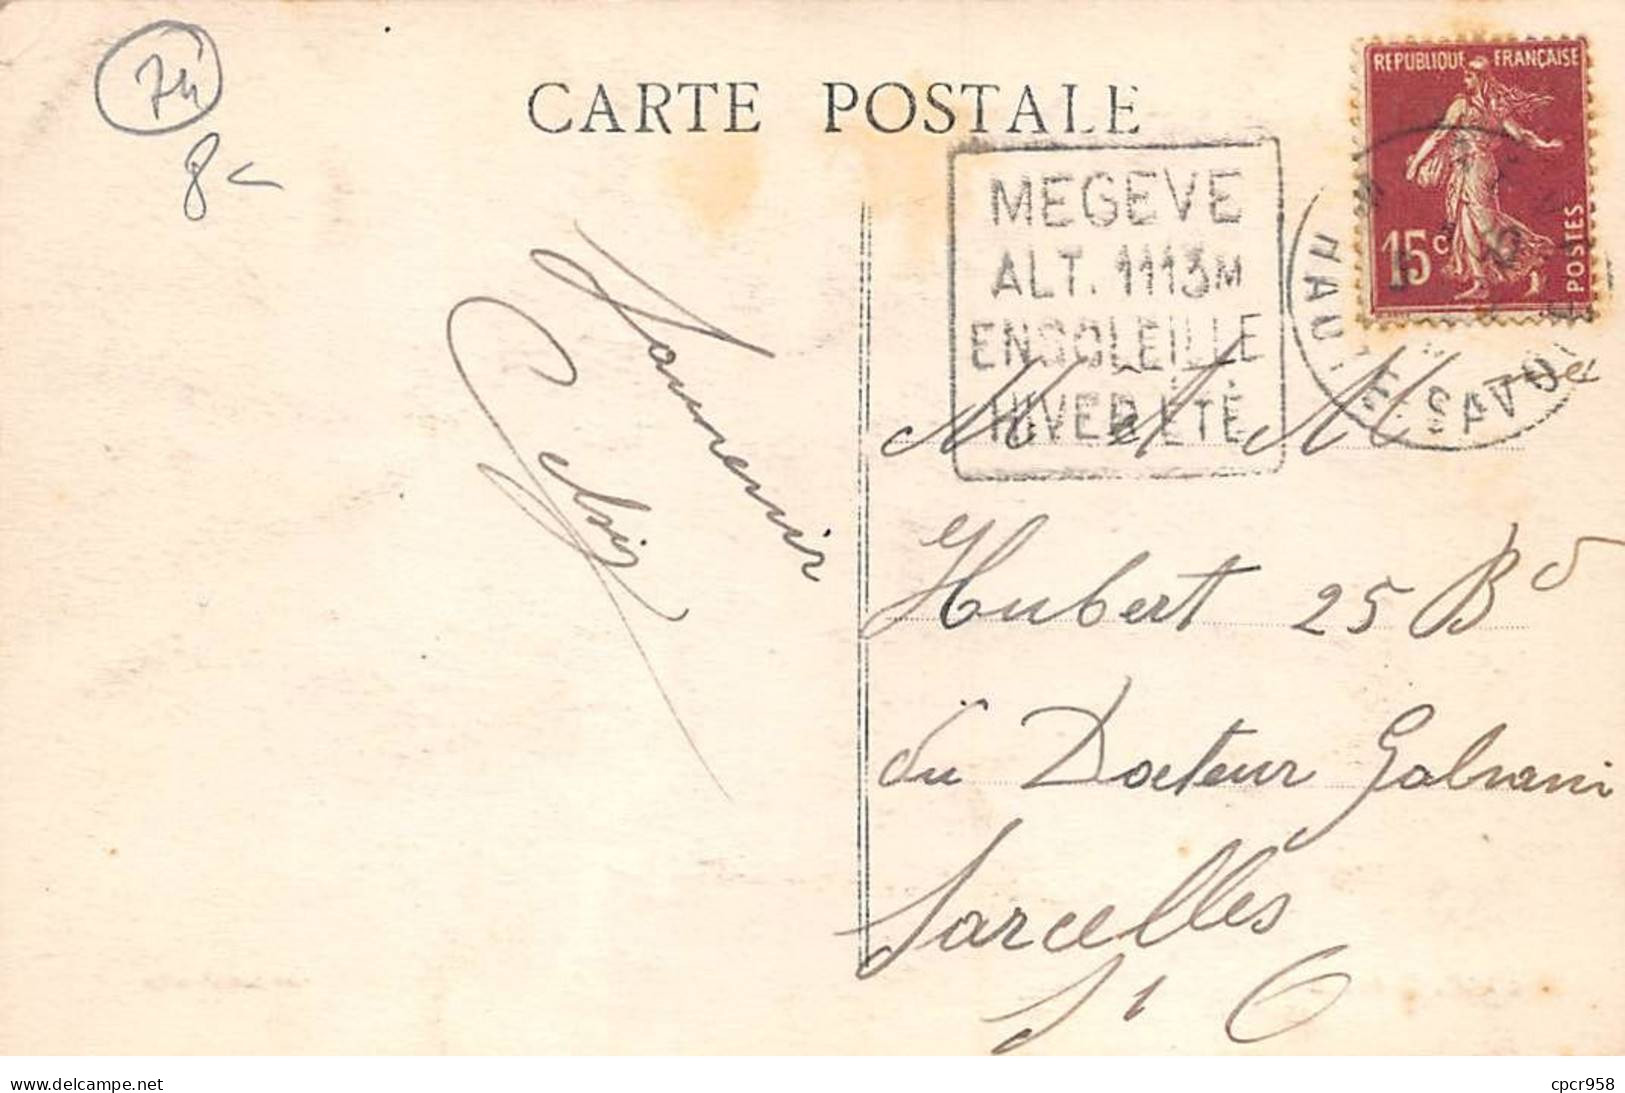 74
8
CARTE POSTALE
REPUBLIQUE FRANÇAISE
15c
POSTES
MEGEVE
ALT. 1113M
ENSOLEILLE
HIVER ÉTÉ
HAUTE-SAVOIE
Souvenir
M et Mme
Hubert 25 Bd
du Docteur Galvani
Sarcelles
S O
www.delcampe.net
cpcr958